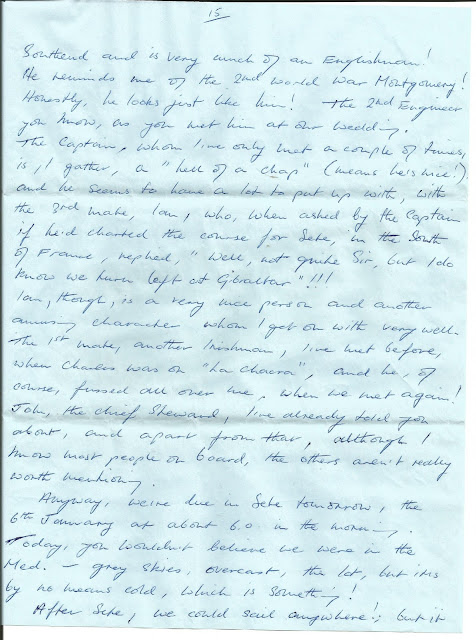 15
Southend and is very much of an Englishman!
He reminds me of the 2nd World War Montgomery!
Honestly, he looks just like him! The 2nd Engineer
you know, as you met him at our wedding.
The Captain, whom I've only met a couple of times,
is, I gather, a "hell of a chap" (means he's nice!),
and he seems to have a lot to put up with, with
the 3rd mate, Ian, who, when asked by the Captain
if he'd charted the course for Sete, in the South
of France, replied, "Well, not quite Sir, but I do
know we turn left at Gibraltar"!!!
Ian, though, is a very nice person and another
amusing character whom I get on with very well.
The 1st mate, another Irishman, I've met before,
when Charles was on "La Chacra", and he, of
course, fussed all over me, when we met again!
John, the chief Steward, I've already told you
about, and apart from that, although I
know most people on board, the others aren't really
worth mentioning.
Anyway, we're due in Sete tomorrow, the
6th January at about 6.0 in the morning.
Today, you wouldn't believe we were in the
Med. - grey skies, overcast, the lot, but it's
by no means cold, which is something!
After Sete, we could sail anywhere!; but it